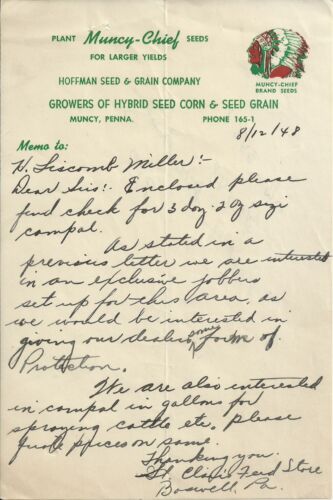 PLANT Muncy-Chief SEEDS
FOR LARGER YIELDS
HOFFMAN SEED & GRAIN COMPANY
GROWERS OF HYBRID SEED CORN & SEED GRAIN
MUNCY, PENNA. PHONE 165-1
MUNCY-CHIEF
BRAND SEEDS
8/12/48
Memo to:
H. Liscomb Miller:-
Dear Sirs:- Enclosed please
find check for 3 doz. 2 oz size
compal.
As stated in a
previous letter we are interested
in an exclusive jobbers
set up for this area, as
we would be interested in
giving our dealers some form of
Protection.
We are also interested
in compal in gallons for
spraying cattle etc. please
quote prices on same.
Thanking you.
St. Clair Feed Store
Boswell, Pa.